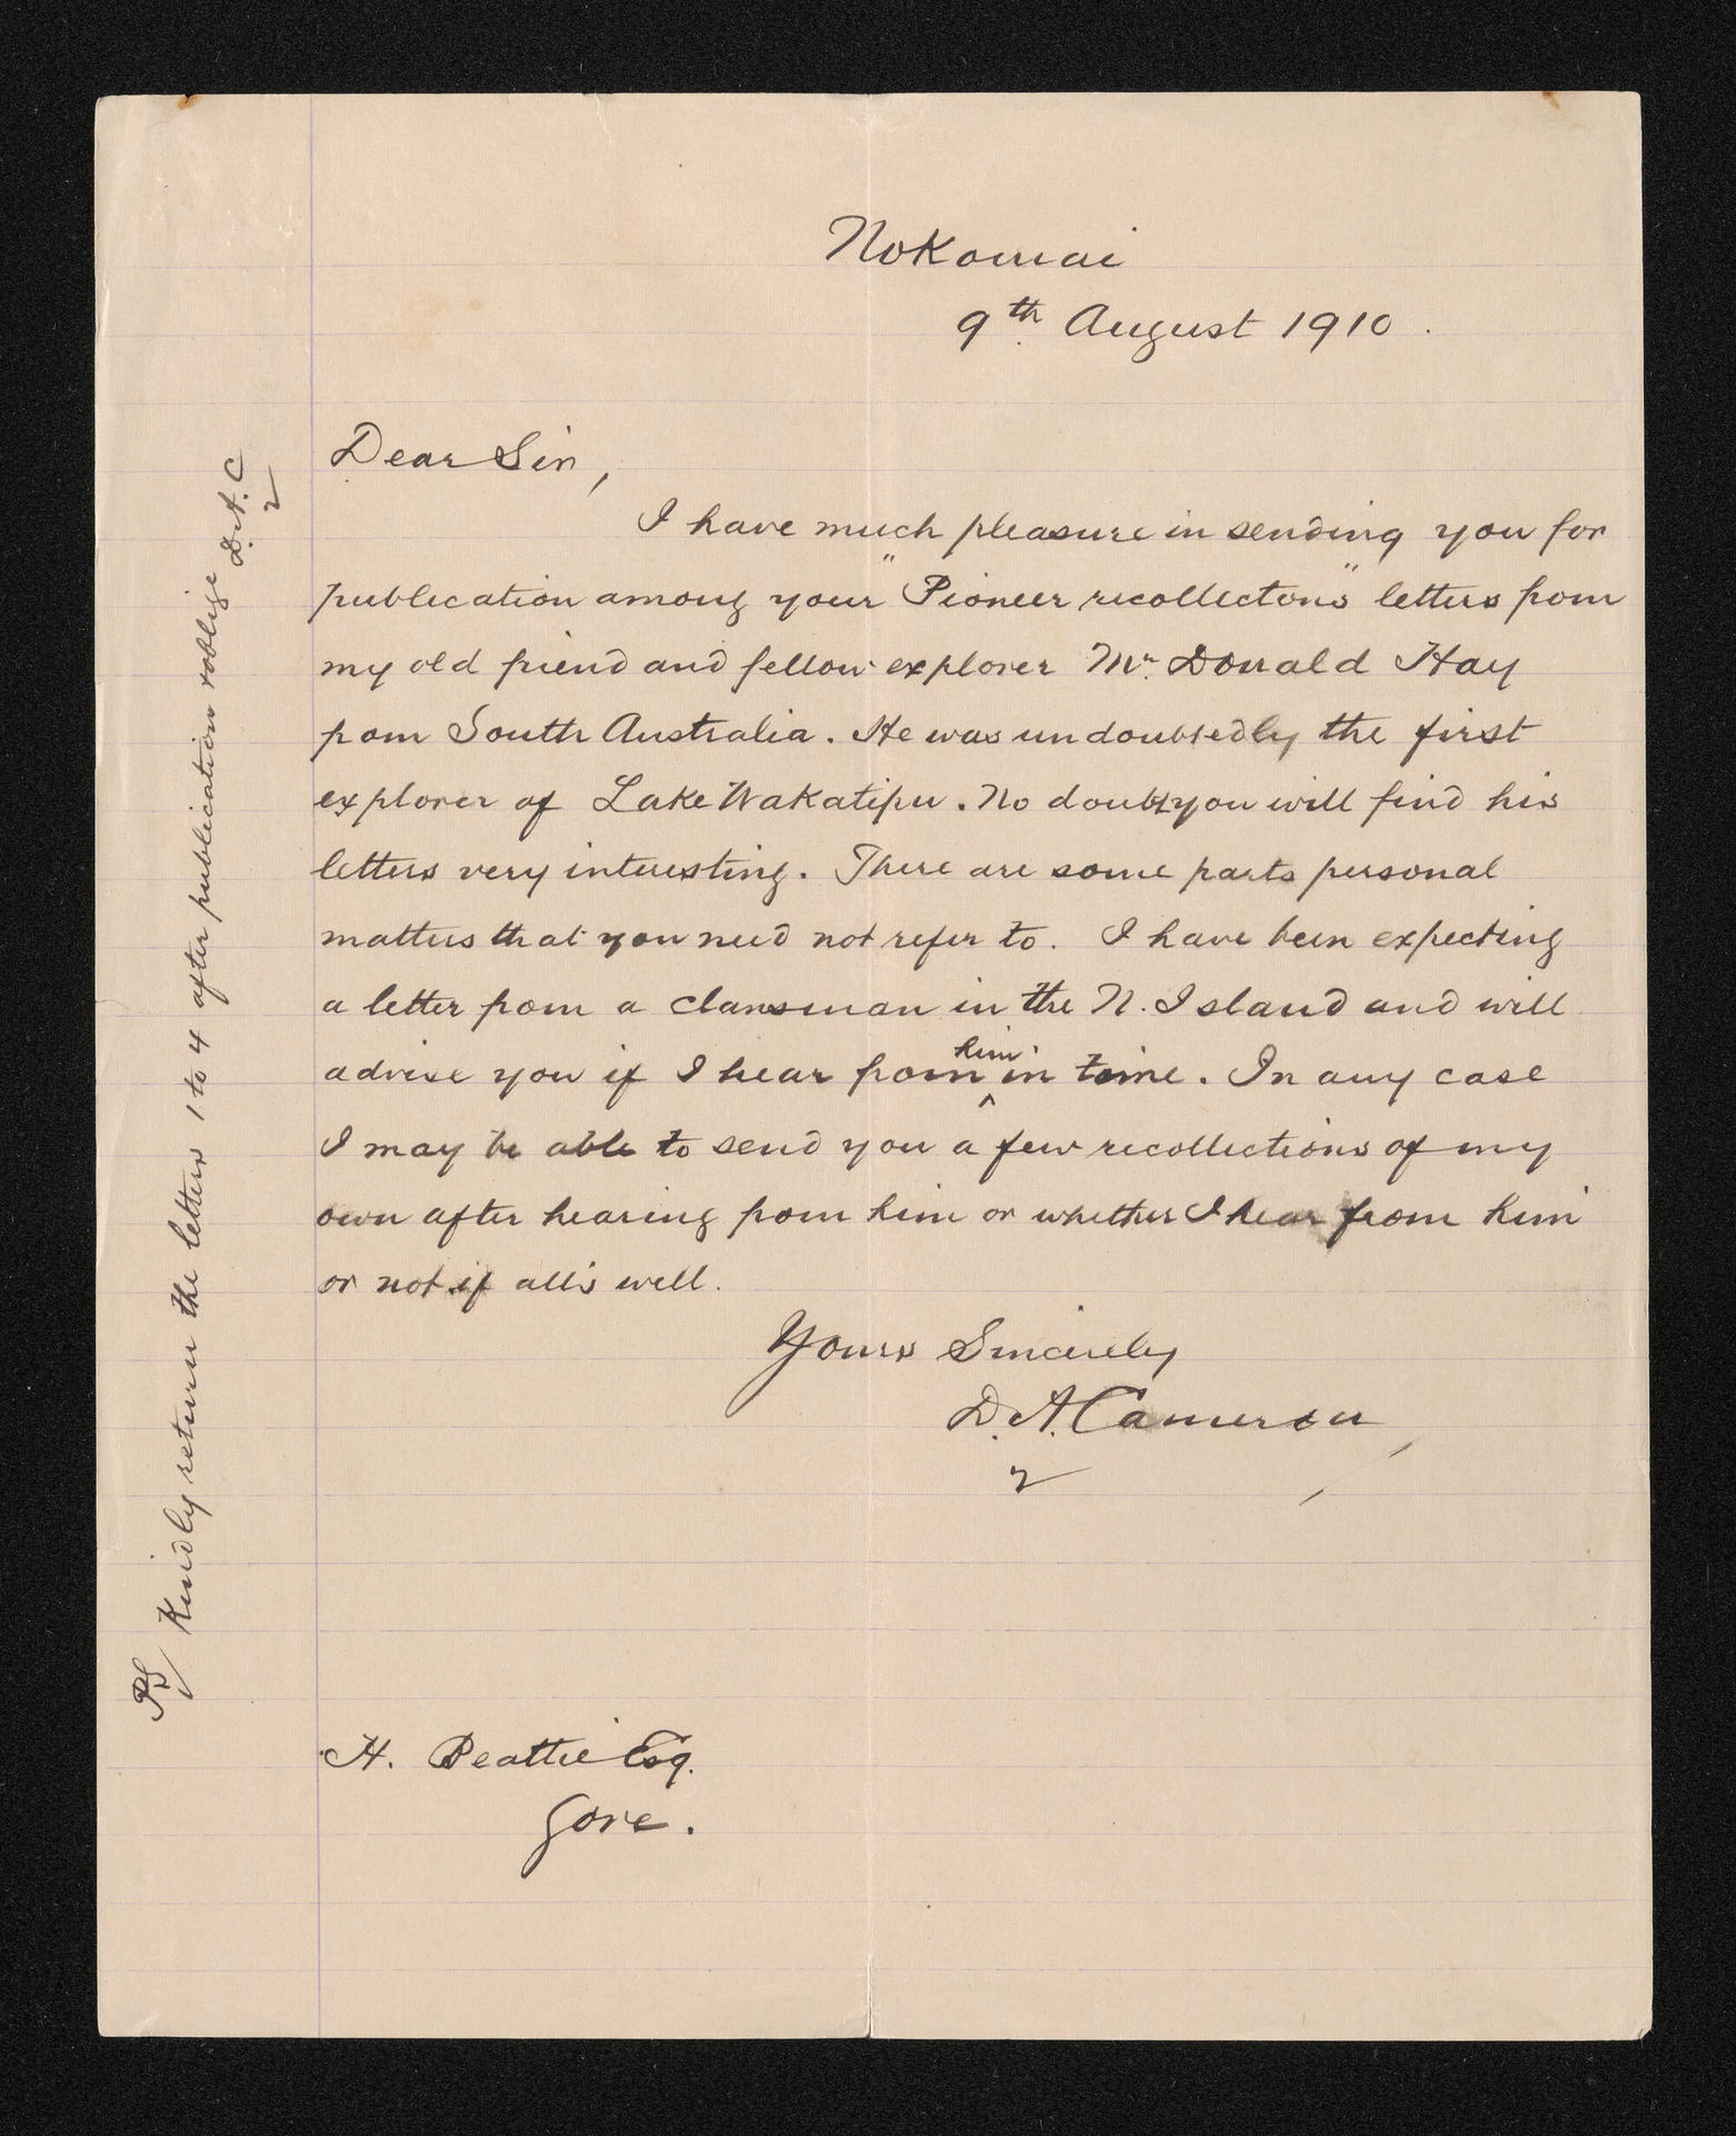 Nokomai
9th. August 1910.
Dear Sir,
I have much pleasure in sending you for
publication among your "Pioneer recollectons" letters from
my old friend and fellow explorer Mr. Donald Hay
from South Australia. He was undoubtedly the first
explorer of Lake Wakatipu. No doubt you will find his
letters very interesting. There are some parts personal
matters that you need not refer to. I have been expecting
a letter from a clansman in the N. Island and will
advise you if I hear from ^him in time. In any case
I may be able to send you a few recollections of my
own after hearing from him or whether I hear from him
or not if all's well.
Yours Sincerely
D. A. Cameron
H. Beattie Esq.
Gore.
PS Kindly return the letters 1 to 4 after publication & oblige
D.A.C